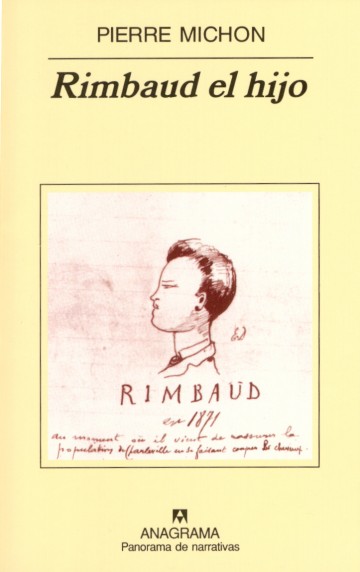 PIERRE MICHON
Rimbaud el hijo
ED
RIMBAUD
en 1871
au moment où il vient de rassurer la
population de Charleville en se faisant couper les cheveux.
ANAGRAMA
Panorama de narrativas